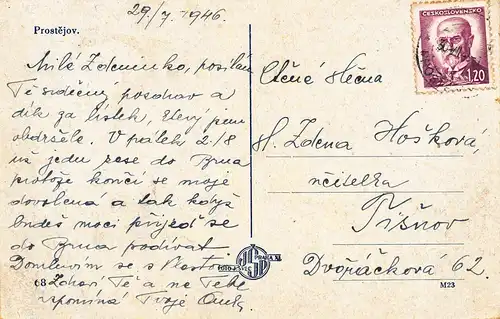 29/7. 1946.
Prostějov.
Milá Zdeninko, posílám
Ti srdečný pozdrav a
dík za lístek, který jsem
obdržela. V pátek 2/8
už jedu zase do Brna
protože končí se moje
dovolená a tak když
budeš moci přijeď se
do Brna podívat
Domluvím se s Vlastou
Zdraví Tě a na Tebe
vzpomíná Tvoje
68
ČESKOSLOVENSKO
1,20
Ctěná slečna
sl. Zdena Hošková,
učitelka
Tišnov
Dvořáčkova 62.
M23